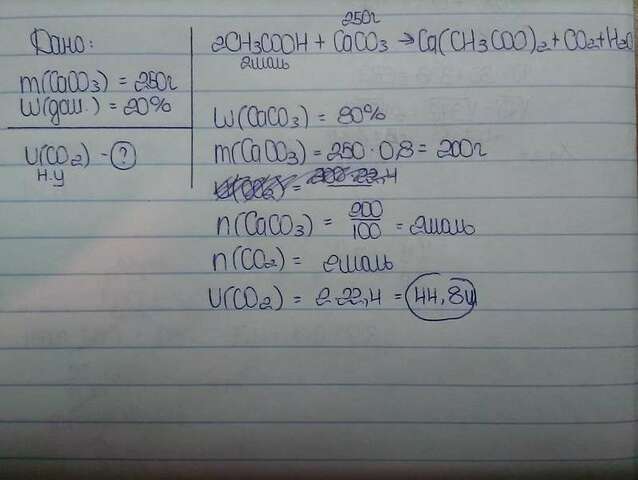 Дано:
m(CaCO3) = 250г
W(дом.) = 20%
U(CO2) - ?
н.у
250г
2CH3COOH + CaCO3 → Ca(CH3COO)2 + CO2 + H2O
2моль
W(CaCO3) = 80%
m(CaCO3) = 250 · 0,8 = 200г
n(CaCO3) = 200/100 = 2моль
n(CO2) = 2моль
U(CO2) = 2·22,4 = 44,8л